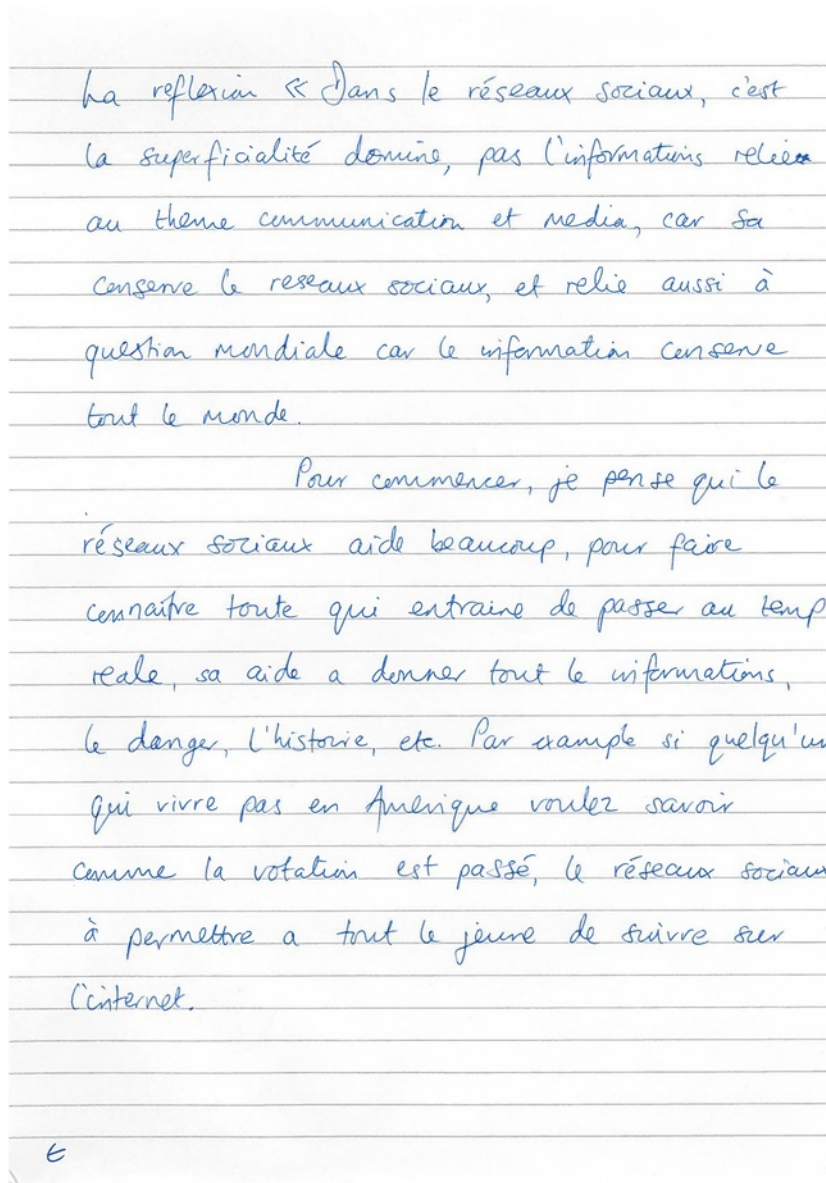 La reflexion « Dans le réseaux soziaux, c'est
la superficialité domine, pas l'informations relie
au theme communication et media, car sa
conserve le reseaux sociaux, et relie aussi à
question mondiale car le information conserve
tout le monde.
Pour commencer, je pense qui le
réseaux soziaux aide beaucoup, pour faire
connaitre toute qui entraine de passer au temp
reale, sa aide a donner tout le informations,
le danger, l'histoire, etc. Par example si quelqu'un
qui vivre pas en Amérique voulez savoir
comme la votation est passé, le réseaux sociaux
à permettre a tout le jeune de suivre sur
l'internet.